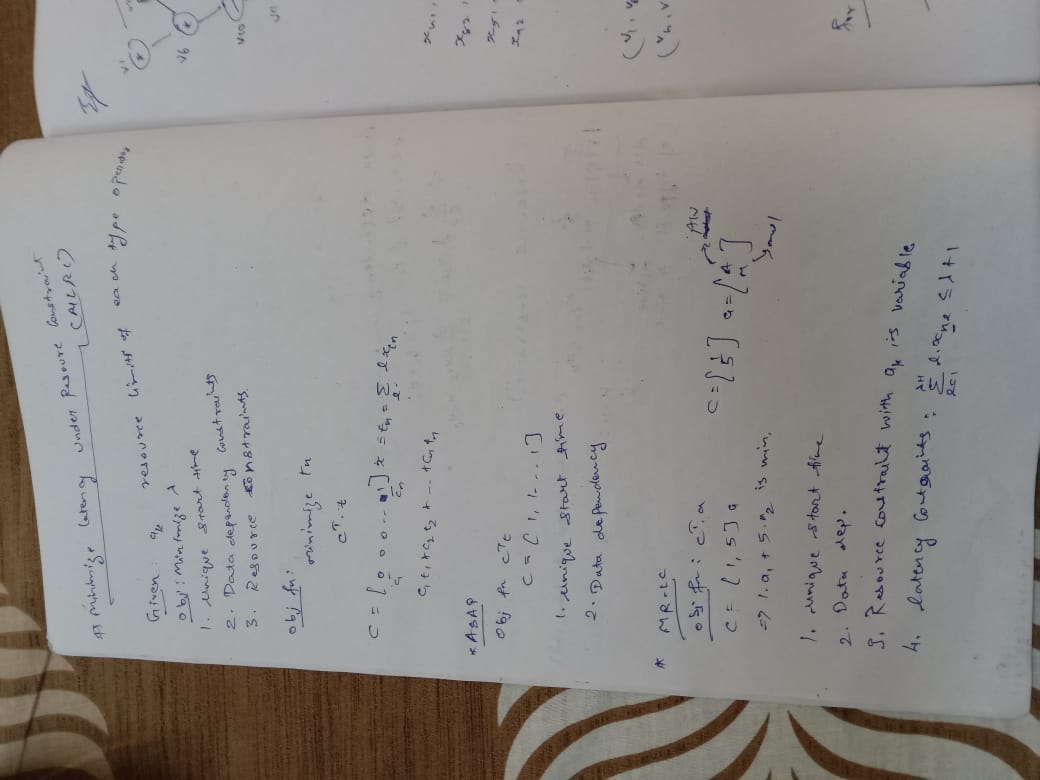 # Minimize latency under Resource Constraint
(MLRC)
Given: aₖ resource limits of each type
Obj: minimize λ
1. unique start time
2. Data dependency constraints
3. Resource constraints
Obj fn:
minimize tn
cᵀ.t
c = [0 0 0 ... 1] x = tn = Σ l xln
c1 cn l
c1t1 + c2 t2 + ... + cn tn
* ASAP
Obj fn cᵀt
c = [1, 1, ... 1]
1. unique start time
2. Data dependency
* MR-LC
Obj fn: cᵀ.a
c = [1, 5] a = [A M]
c = [1, 5]
=> 1.a₁ + 5.a₂ is min.
1. unique start time
2. Data dep.
3. Resource constraint with aₖ is variable
4. latency : Σ l.xne ≤ λ+1
v1
v6
v10